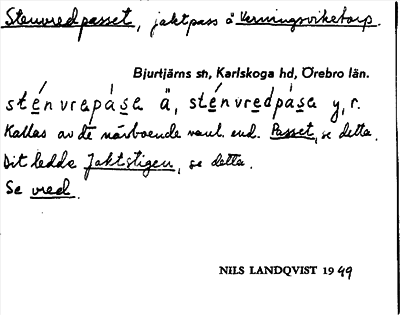 Stenvredpasset, jaktpass å Kerningsviketorp.
Bjurtjärns sn, Karlskoga hd, Örebro län.
sténvrepåsa ä, sténvredpåsa y, r.
Kallas av de närboende vanl. end. Passet, se detta.
Dit ledde Jaktstigen, se detta.
Se vred.
NILS LANDQVIST 1949